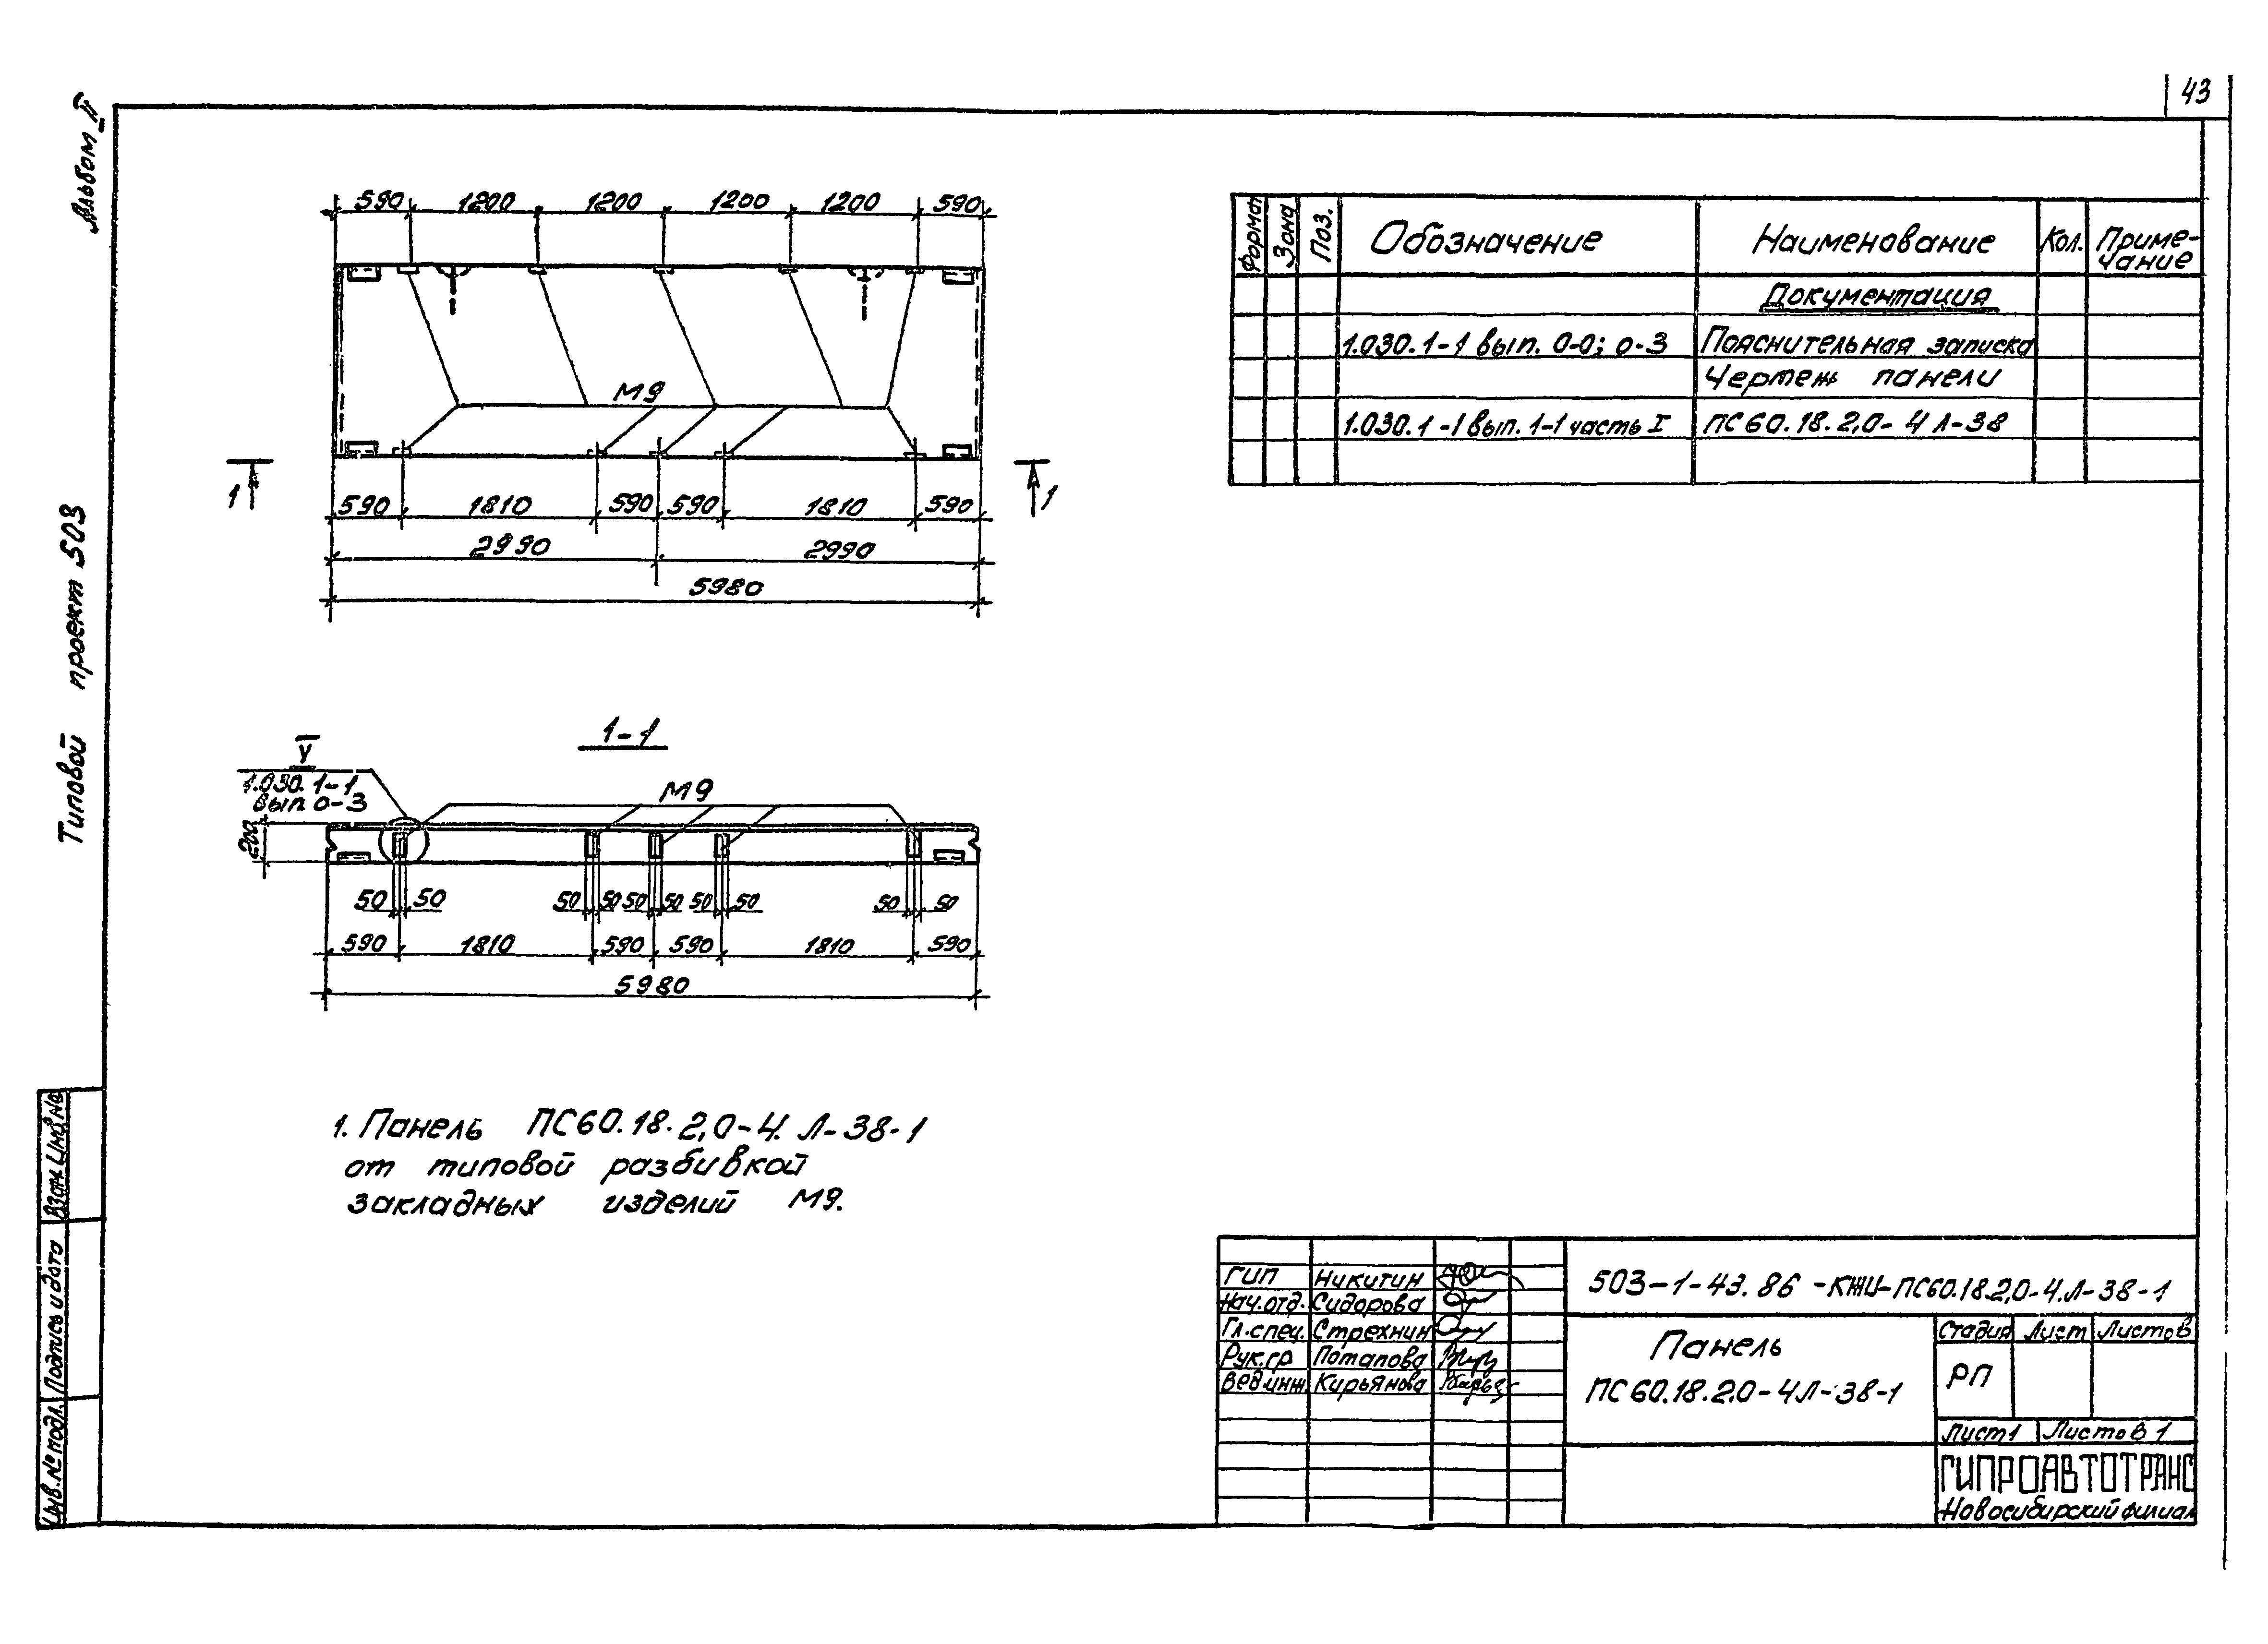 43
Альбом II
Типовой проект 503
590 1200 1200 1200 1200 590
М9
1 1
590 1810 590 590 1810 590
2990 2990
5980
1-1
V
1.030.1-1
вып 0-3
М9
200
50 50 50 50 50 50 50 50 50 50
590 1810 590 590 1810 590
5980
1. Панель ПС60.18.2,0-4.Л-38-1
от типовой разбивкой
закладных изделий М9.
Формат Зона Поз. Обозначение Наименование Кол. Приме-
чание
Документация
1.030.1-1 вып. 0-0; 0-3 Пояснительная записка
Чертеж панели
1.030.1-1 вып. 1-1 часть I ПС60.18.2,0-4Л-38
ГИП Никитин
Нач.отд. Сидорова
Гл.спец. Стрехнин
Рук.гр Потапова
Вед.инж. Кирьянова
503-1-43.86-КЖИ-ПС60.18.2,0-4.Л-38-1
Панель
ПС60.18.2.0-4Л-38-1
Стадия Лист Листов
РП
Лист 1 Листов 1
ГИПРОАВТОТРАНС
Новосибирский филиал
Взам.инв.№
Подпись и дата
Инв.№ подл.